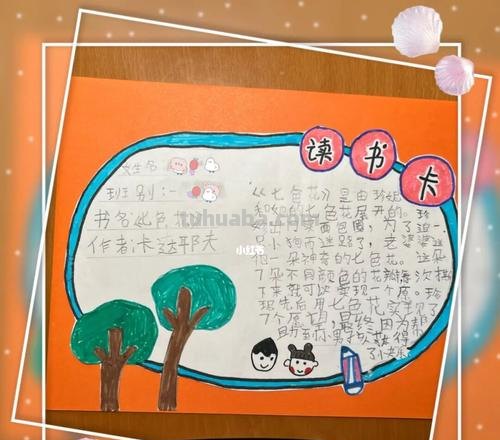 读书卡
女生名
班别：一
书名《七色花》
作者卡达耶夫
《七色花》是由珍妮
和她的七色花展开的。珍
妮出门买面包圈，为了追一
只小狗而迷路了，老婆婆送
她一朵神奇的七色花。这朵
7朵不同颜色的花瓣每次撕
下来就可以实现一个愿。珍
妮先后用七色花实现了
7个愿望，最终因为帮
助
小男孩
获得
了快乐
tvhuaba.com
小红书